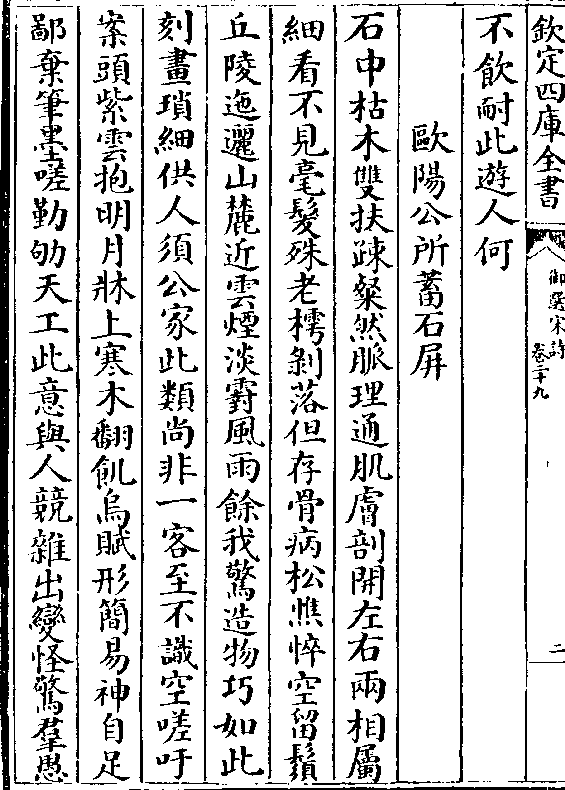 欽定四庫全書
御選宋詩
卷二十九
二
不飲耐此遊人何
歐陽公所蓄石屏
石中枯木雙扶疎粲然脈理通肌膚剖開左右兩相屬
細看不見毫髮殊老樗剝落但存骨病松憔悴空留鬚
丘陵迤邐山麓近雲煙淡霨風雨餘我驚造物巧如此
刻畫瑣細供人須公家此類尚非一客至不識空嗟吁
案頭紫雲抱明月牀上寒木翻飢烏賦形簡易神自足
鄙棄筆墨嗟勤劬天工此意與人競雜出變怪驚羣愚